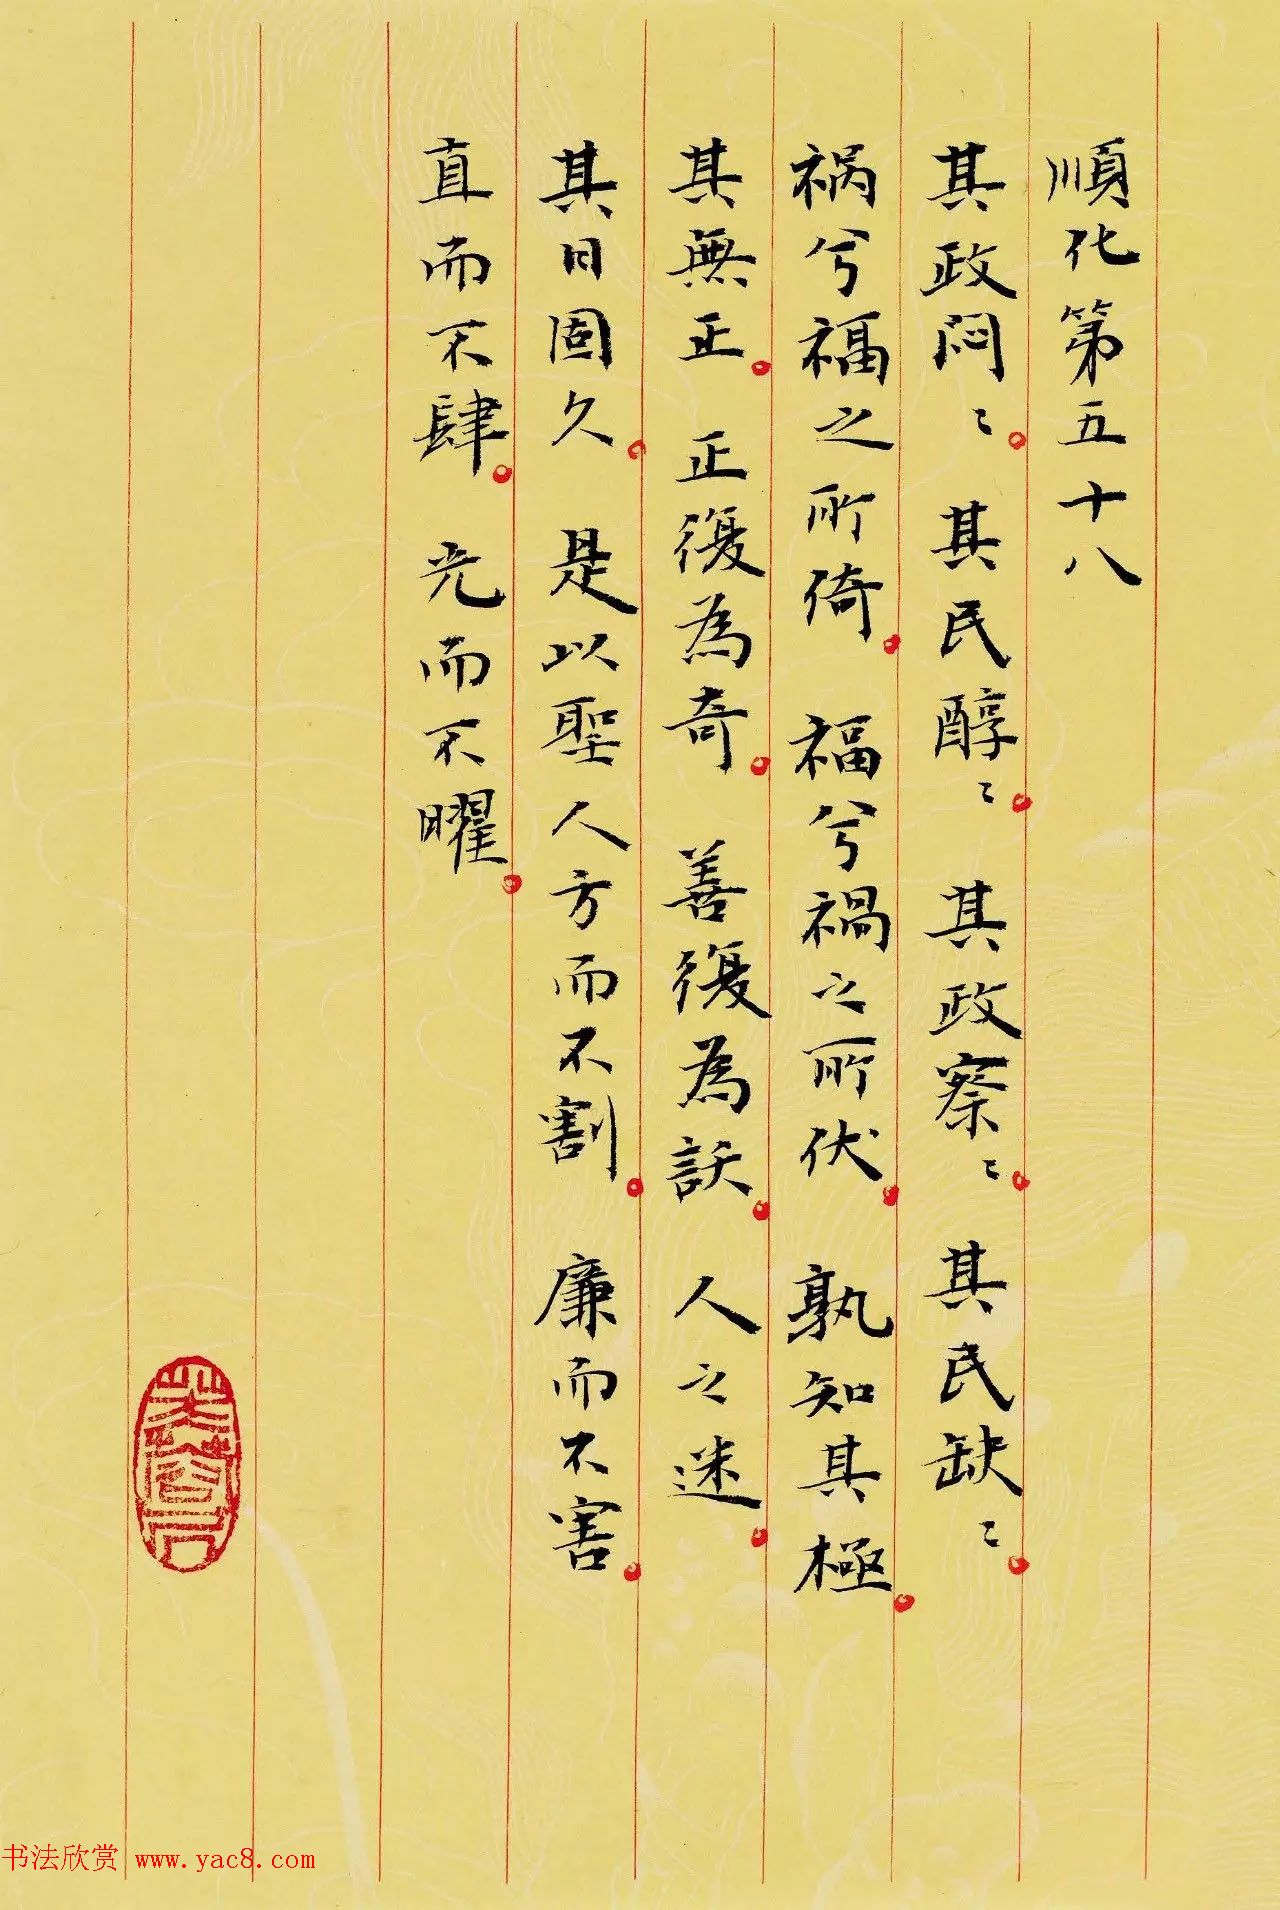 順化第五十八
其政悶〻。其民醇〻。其政察〻。其民缺〻。
祸兮福之所倚。福兮禍之所伏。孰知其極。
其無正。正復為奇。善復為訞。人之迷。
其日固久。是以聖人方而不割。廉而不害。
直而不肆。光而不曜。
书法欣赏 www.yac8.com